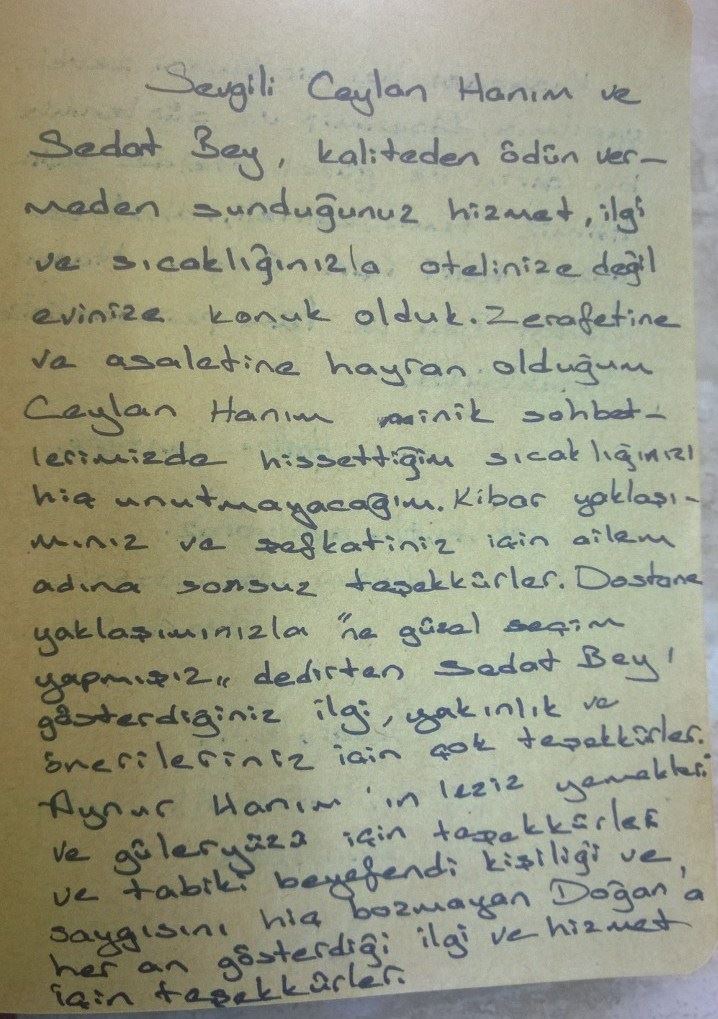 Sevgili Ceylan Hanım ve
Sedat Bey, kaliteden ödün ver-
meden sunduğunuz hizmet, ilgi
ve sıcaklığınızla otelinize değil
evinize konuk olduk. Zerafetine
ve asaletine hayran olduğum
Ceylan Hanım minik sohbet-
lerimizde hissettiğim sıcaklığınızı
hiç unutmayacağım. Kibar yaklaşı-
mınız ve şefkatiniz için ailem
adına sonsuz teşekkürler. Dostane
yaklaşımınızla "ne güzel seçim
yapmışız" dedirten Sedat Bey!
gösterdiğiniz ilgi, yakınlık ve
önerileriniz için çok teşekkürler.
Aynur Hanım'ın leziz yemekleri
ve güleryüzü için teşekkürler
ve tabiki beyefendi kişiliği ve
saygısını hiç bozmayan Doğan'a
her an gösterdiği ilgi ve hizmet
için teşekkürler.